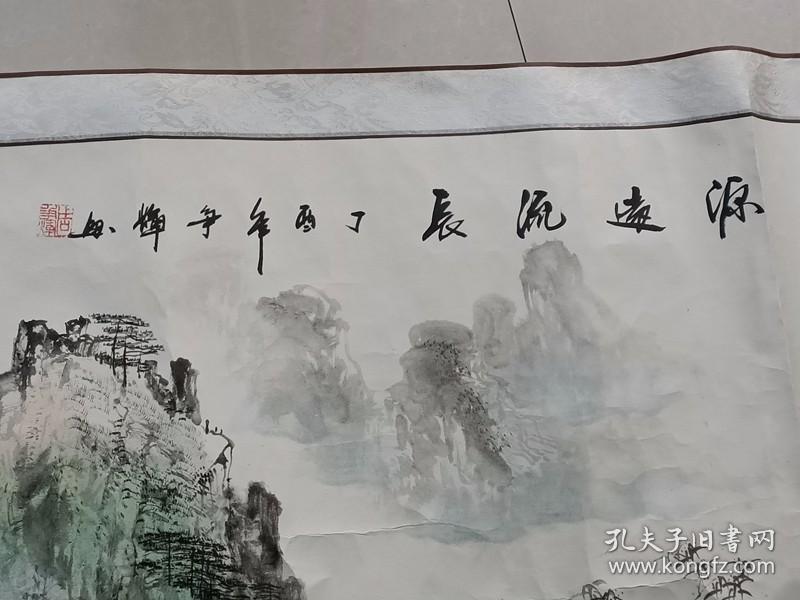 源遠流長 丁酉年争輝
孔夫子旧書网
www.kongfz.com